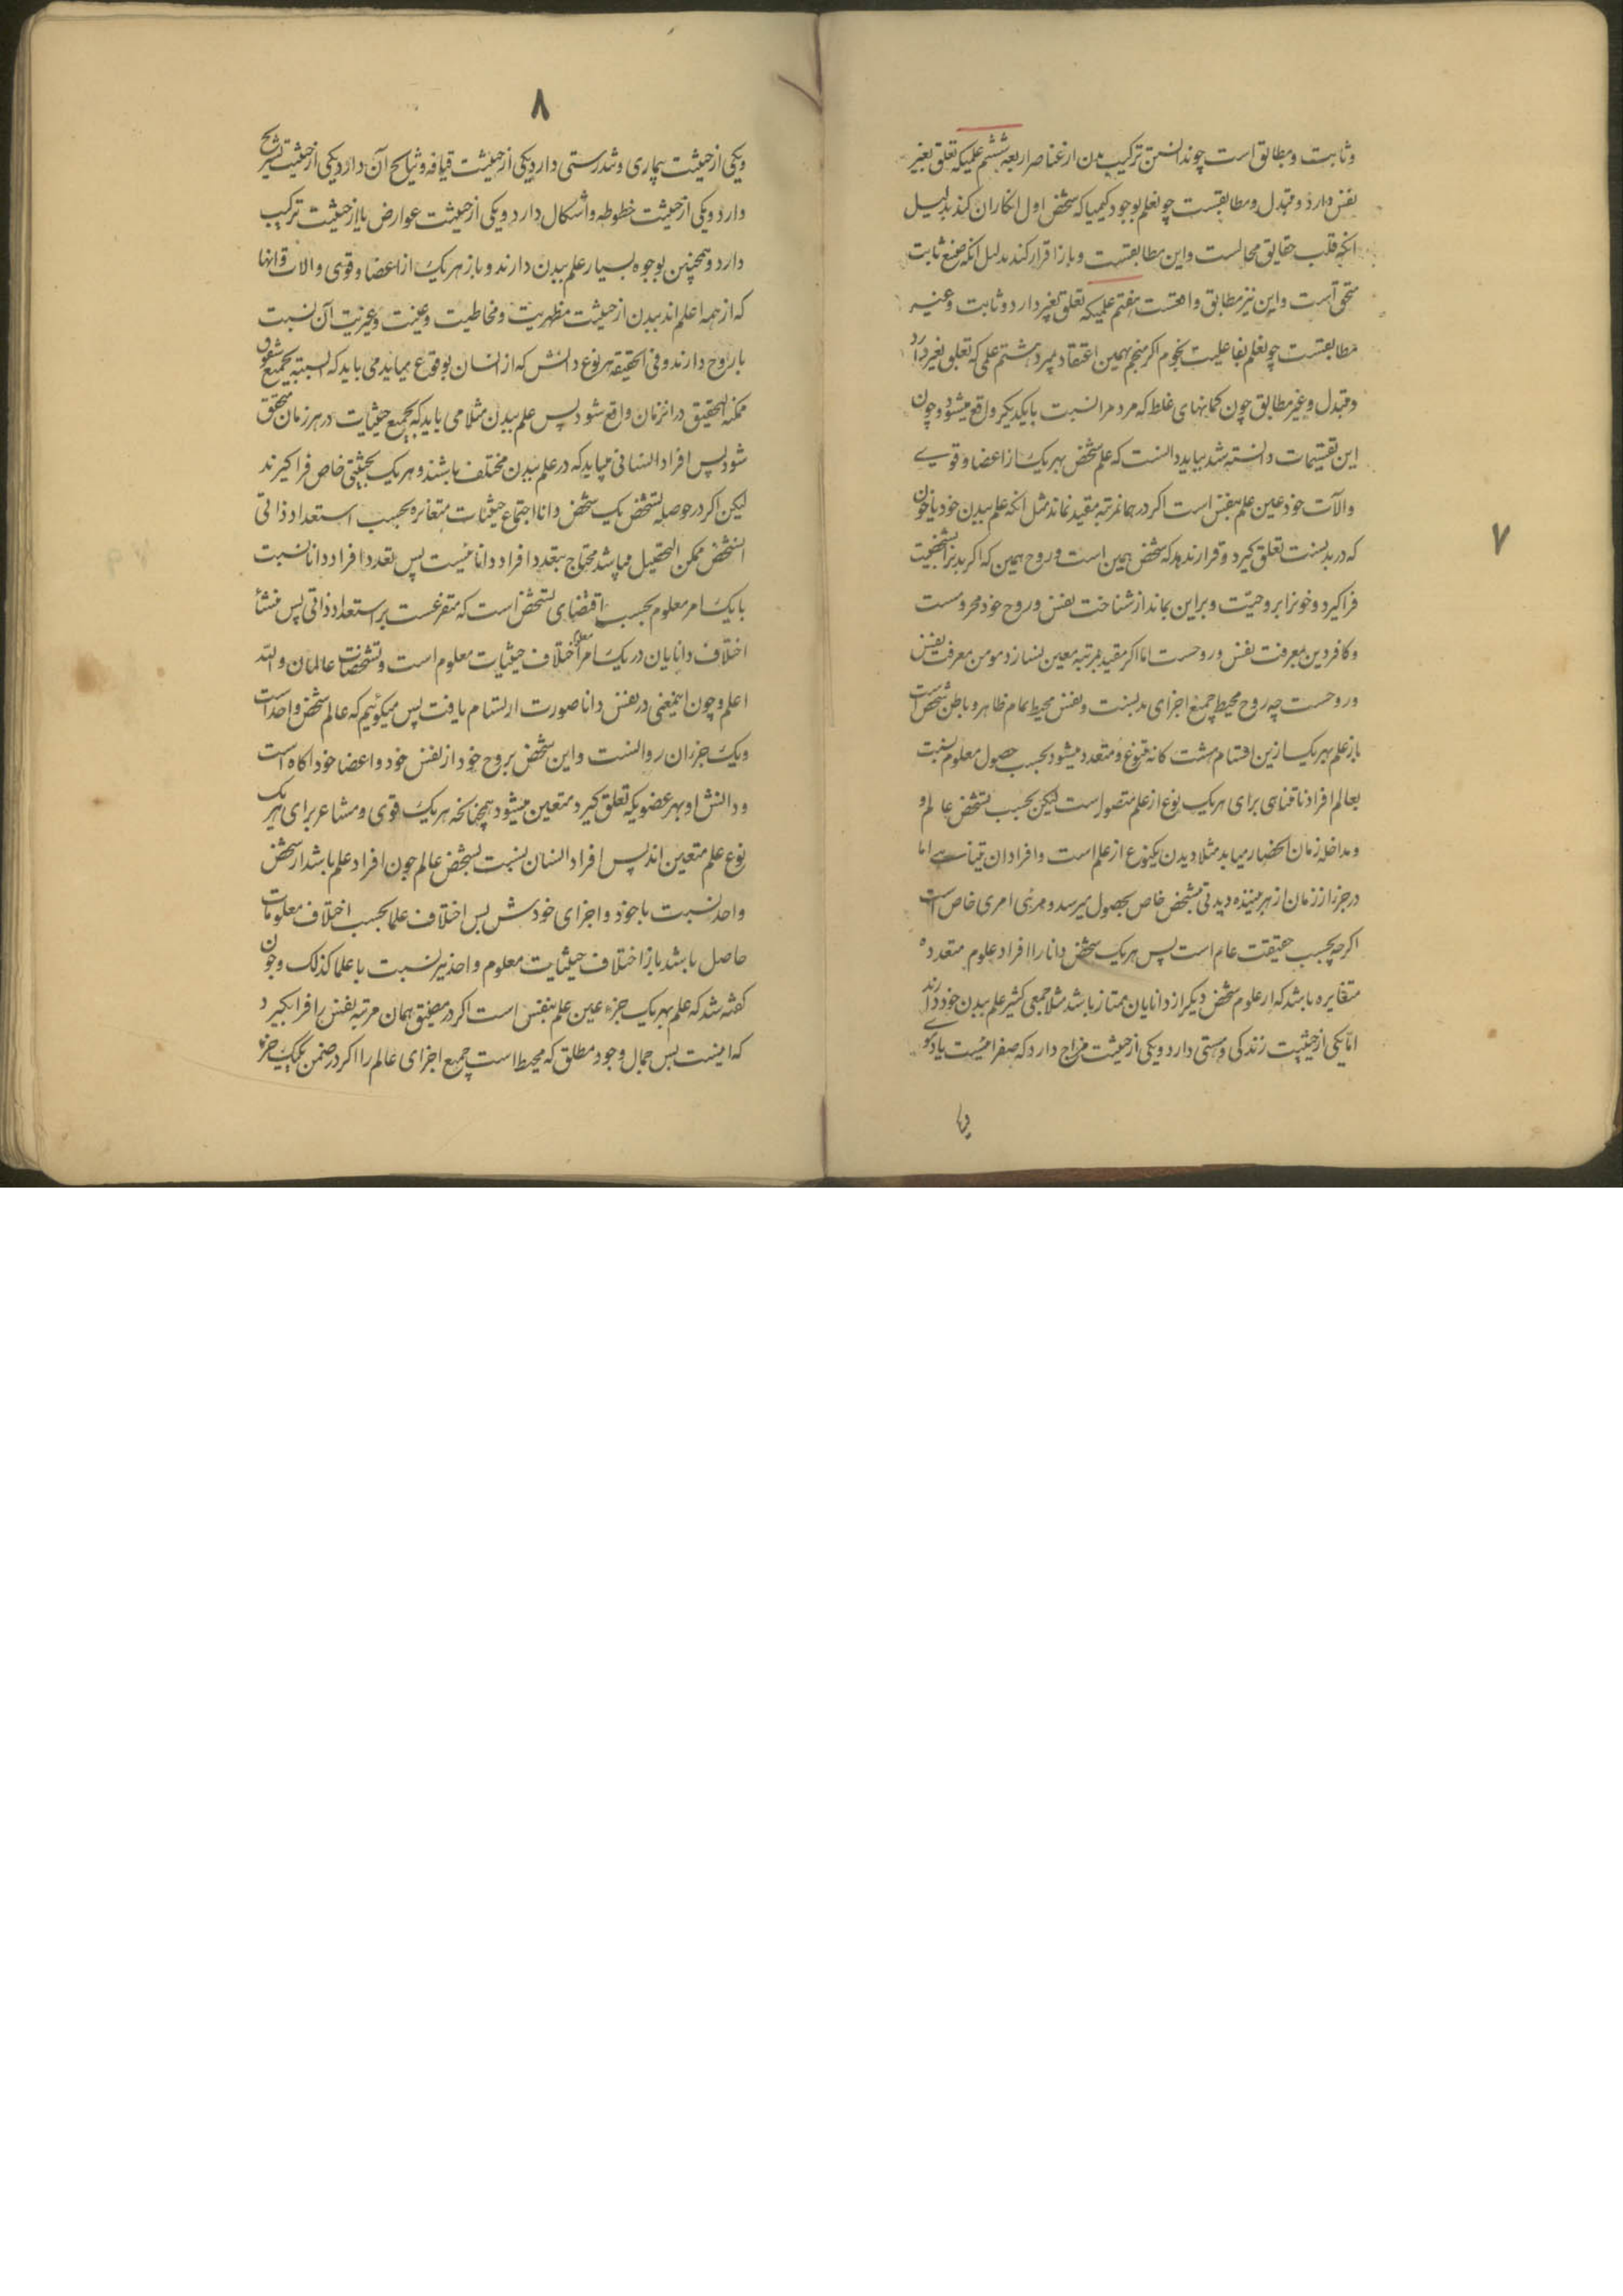 ۷
وثابت و مطابق است چون دانستن ترکیب بدن از عناصر اربعه ششم علمیکه تعلق بغیر
نفس دارد و متبدل و مطابقست چو نعلم بوجود کیمیا که شخص اول انکار ان کند بدلیل
انکه قلب حقایق محالست و این مطابقست و باز اقرار کند بدلیل انکه صنع ثابت
متحقق است و این نیز مطابق واقعست هفتم علمیکه تعلق بغیر دارد و ثابت و غیر
مطابقست چو نعلم بفاعلیت نجوم اگر منجم بهمین اعتقاد بمیرد هشتم علمی که تعلق بغیر دارد
و متبدل و غیر مطابق چون کمانهای غلط که مردمرا نسبت بایکدیکر واقع میشود و چون
این تقسیمات دانسته شد بباید دانست که علم شخص بهر یک از اعضا و قوی
والآت خود عین علم بنفس است اکر در همانمرتبه مقید نماند مثل انکه علم ببدن خود یا چون
که در بدنست تعلق کیرد و قرار ندهد که شخص همین است و روح همین که اکر بدنرا بشخصیت
فراکیرد و خونرا بروحیت و براین بماند از شناخت نفس و روح خود محرومست
و کافر دین معرفت نفس و روحست اما اکر مقید بمرتبه معین نسازد مومن معرفت نفس
و روحست چه روح محیط جمیع اجزای بدنست و نفس محیط تمام ظاهر و باطن شخص است
باز علم بهر یک ازین اقسام هشت کانه متنوع و متعدد میشود بحسب حصول معلوم نسبت
بعالم افراد نامتناهی برای هر یک نوع از علم متصور است لیکن بحسب تشخص عالم و
و مداخله زمان انحصار میابد مثلا دیدن یکنوع از علم است و افراد ان بینهایت اما
در جزء از زمان از هر بیننده دیدنی مشخص خاص بحصول میرسد و مرئی امری خاص است
اکرچه بحسب حقیقت عام است پس هر یک شخص دانا را افراد علوم متعدده
متغایره باشد که از علوم شخص دیکر از دانایان ممتاز باشد مثلا جمعی کثیر علم ببدن خود دارند
اما یکی از حیثیت زندکی و هستی دارد و یکی از حیثیت مزاج دارد که صفرا نیست یا دموی
۸
و یکی از حیثیت بیماری و تندرستی دارد یکی از حیثیت قیافه و ... آن دارد یکی از حیثیت تشریح
دارد و یکی از حیثیت خطوط و اشکال دارد و یکی از حیثیت عوارض یا از حیثیت ترکیب
دارد و همچنین بوجوه بسیار علم ببدن دارند و باز هر یک از اعضا و قوی والات و انها
که از همه اعلم اند ببدن از حیثیت مظهریت و مخاطبیت و عینیت و غیریت آن نسبت
باروح دارند و فی الحقیقه هر نوع دانش که از انسان بوقوع میاید می باید که البته بجمیع شقوق
ممکنه التحقیق در انزمان واقع شود پس علم ببدن مثلا می باید که بجمیع حیثیات در هر زمان متحقق
شود پس افراد انسانی میباید که در علم ببدن مختلف باشند و هر یک بحیثیتی خاص فراکیرند
لیکن اکر در حوصله تشخص یک شخص دانا اجتماع حیثیات متغایره بحسب استعداد ذاتی
انشخص ممکن التحصیل میباشد محتاج بتعدد افراد دانا نیست پس تعدد افراد دانا نسبت
بایک امر معلوم بحسب اقتضای تشخص است که متفرعست بر استعداد ذاتی پس منشأ
اختلاف دانایان در یک امر معلوم اختلاف حیثیات معلوم است و تشخصات عالمان والله
اعلم و چون اینمعنی در نفس دانا صورت ارتسام یافت پس میکوئیم که عالم شخص واحد است
و یک جزء ان روانست و این شخص بروح خود از نفس خود و اعضا خود اکاه است
و دانش او بهر عضویکه تعلق کیرد متعین میشود همچنانکه هر یک قوی و مشاعر برای هر یک
نوع علم متعین اند پس افراد انسان نسبت بشخص عالم چون افراد علم باشد از شخص
واحد نسبت باخود و اجزای خودش پس اختلاف علما بحسب اختلاف معلومات
حاصل باشد باز اختلاف حیثیات معلوم واحد نیز نسبت باعلما کذلک و چون
کفته شد که علم بهر یک جزء عین علم بنفس است اکر در مضیق همان مرتبه نفس را فرا نکیرد
که اینست پس جمال وجود مطلق که محیط است جمیع اجزای عالم را اکر در ضمن یک یک جزء